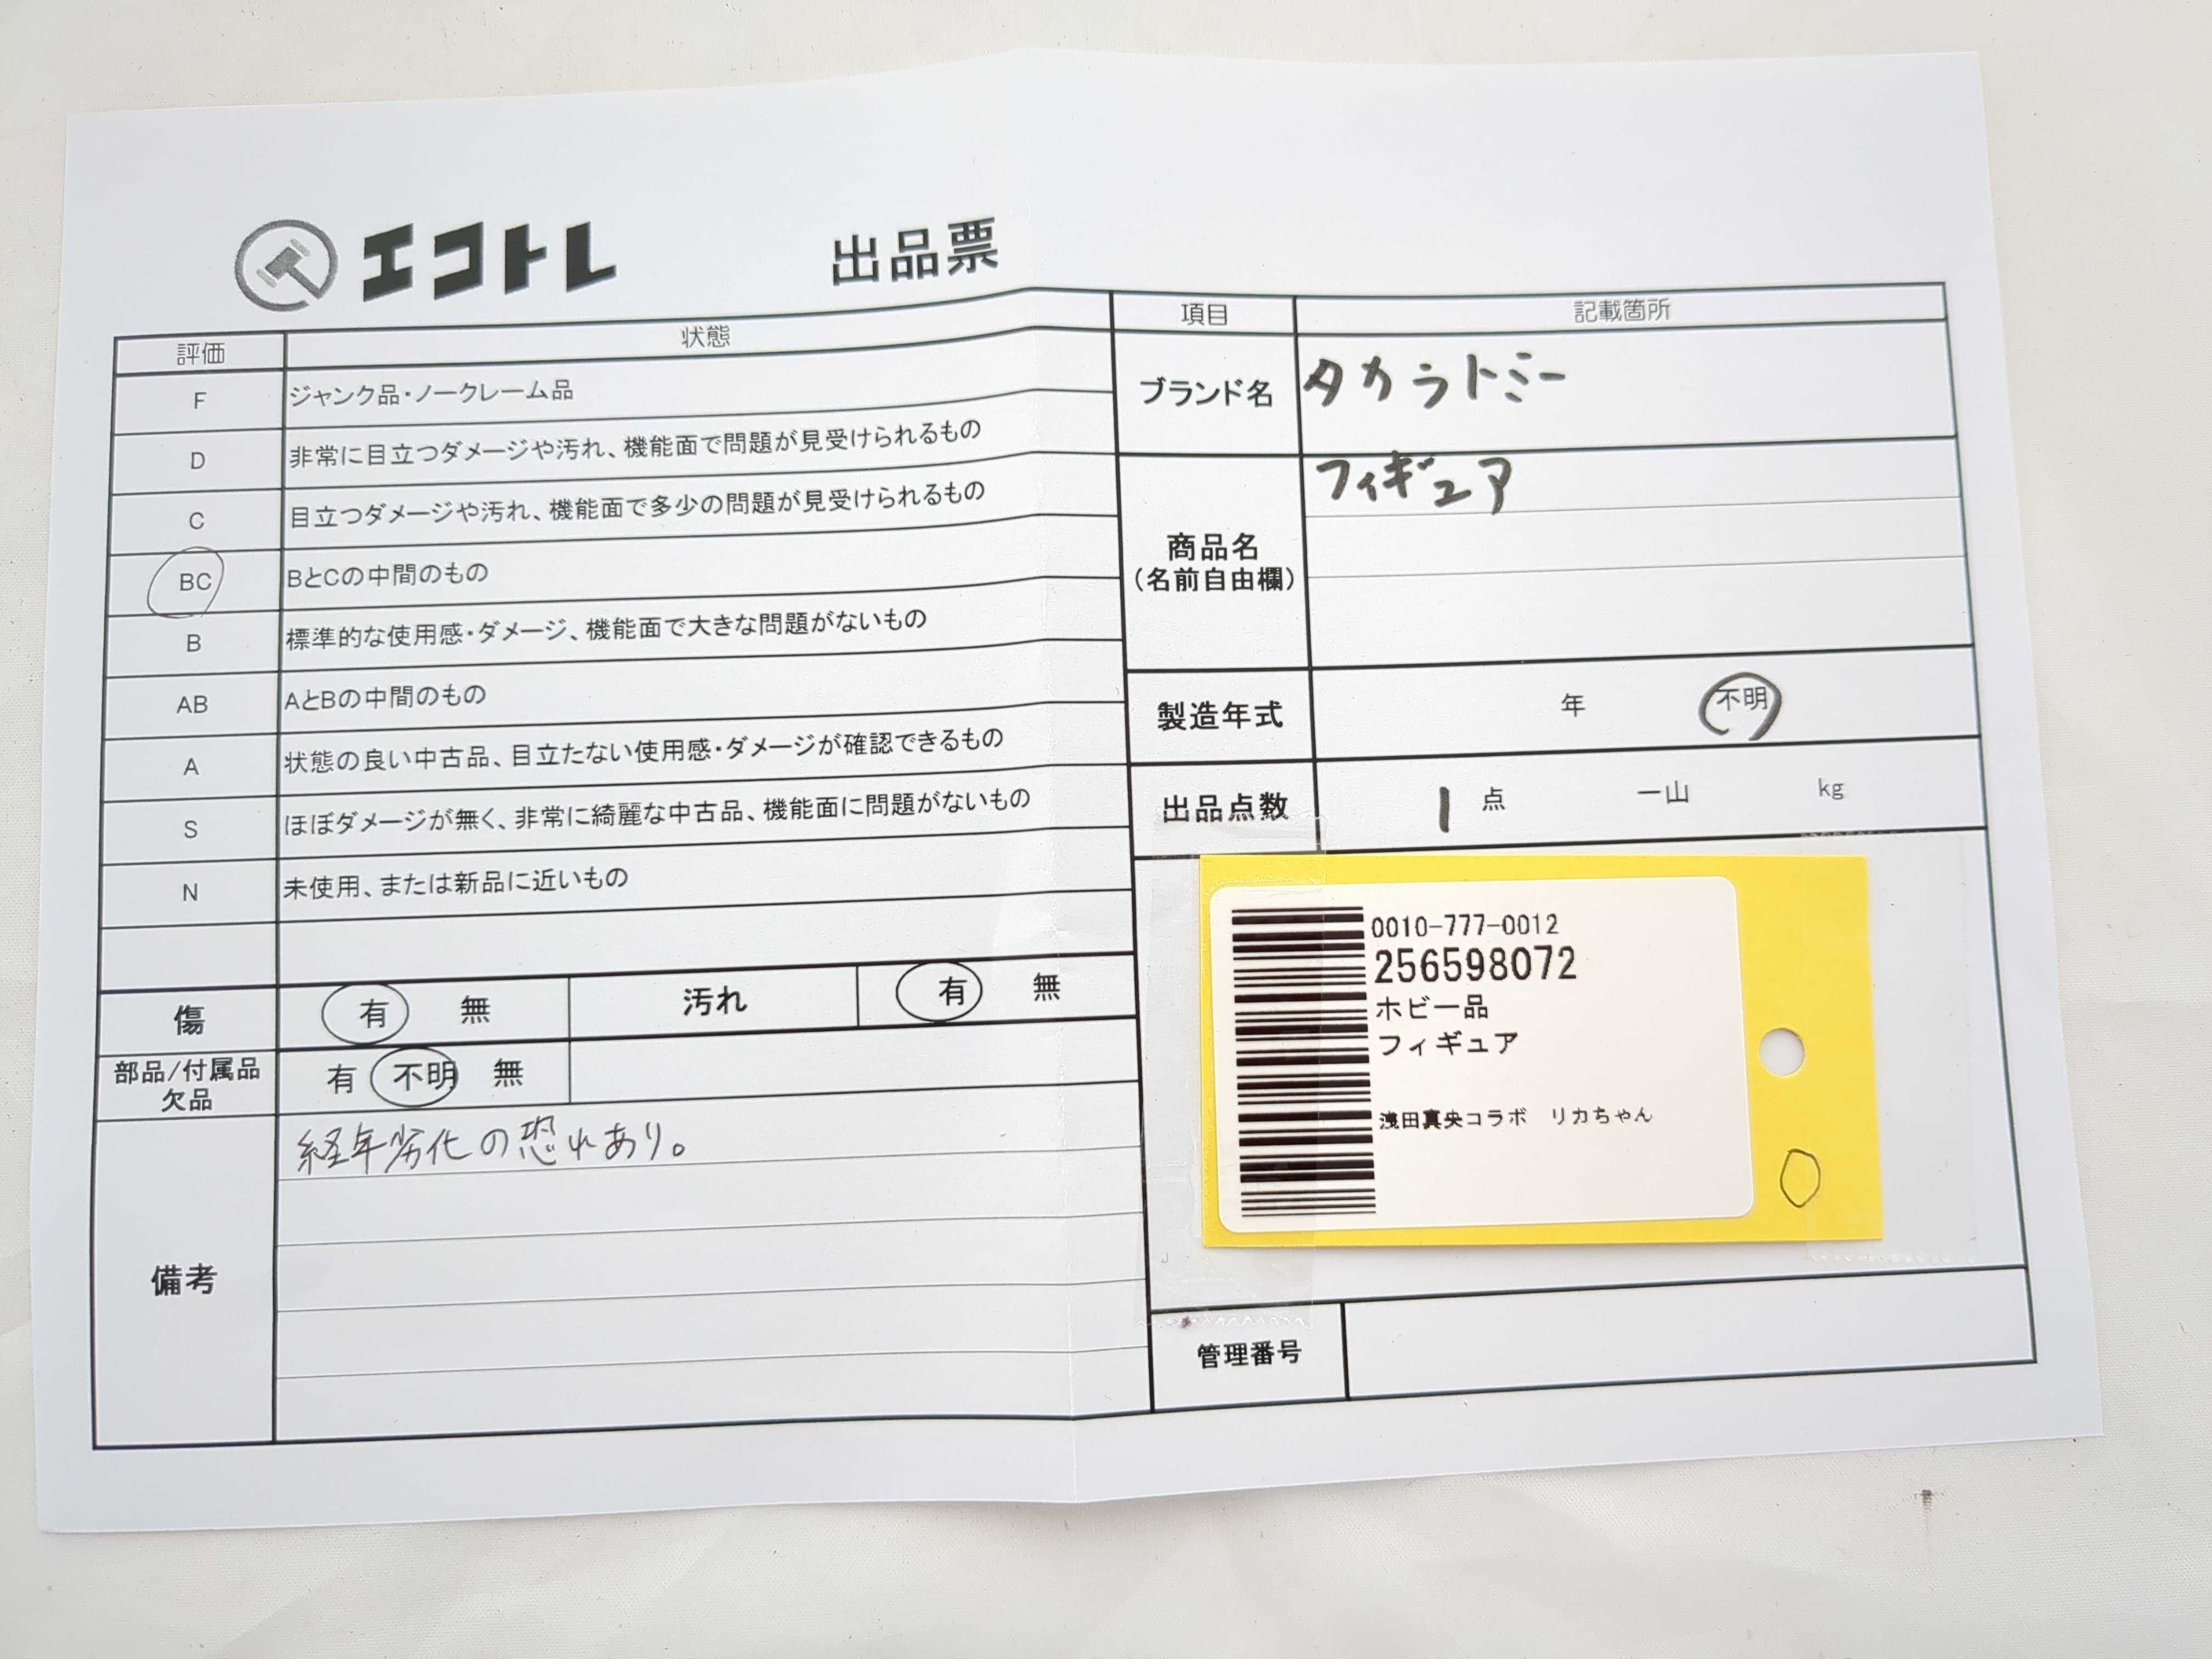 エコトレ 出品票
評価 状態
F ジャンク品・ノークレーム品
D 非常に目立つダメージや汚れ、機能面で問題が見受けられるもの
C 目立つダメージや汚れ、機能面で多少の問題が見受けられるもの
BC BとCの中間のもの
B 標準的な使用感・ダメージ、機能面で大きな問題がないもの
AB AとBの中間のもの
A 状態の良い中古品、目立たない使用感・ダメージが確認できるもの
S ほぼダメージが無く、非常に綺麗な中古品、機能面に問題がないもの
N 未使用、または新品に近いもの
傷 有 無 汚れ 有 無
部品/付属品
欠品 有 不明 無
備考 経年劣化の恐れあり。
項目 記載箇所
ブランド名 タカラトミー
商品名
(名前自由欄) フィギュア
製造年式 年 不明
出品点数 1 点 一山 kg
0010-777-0012
256598072
ホビー品
フィギュア
浅田真央コラボ リカちゃん
管理番号